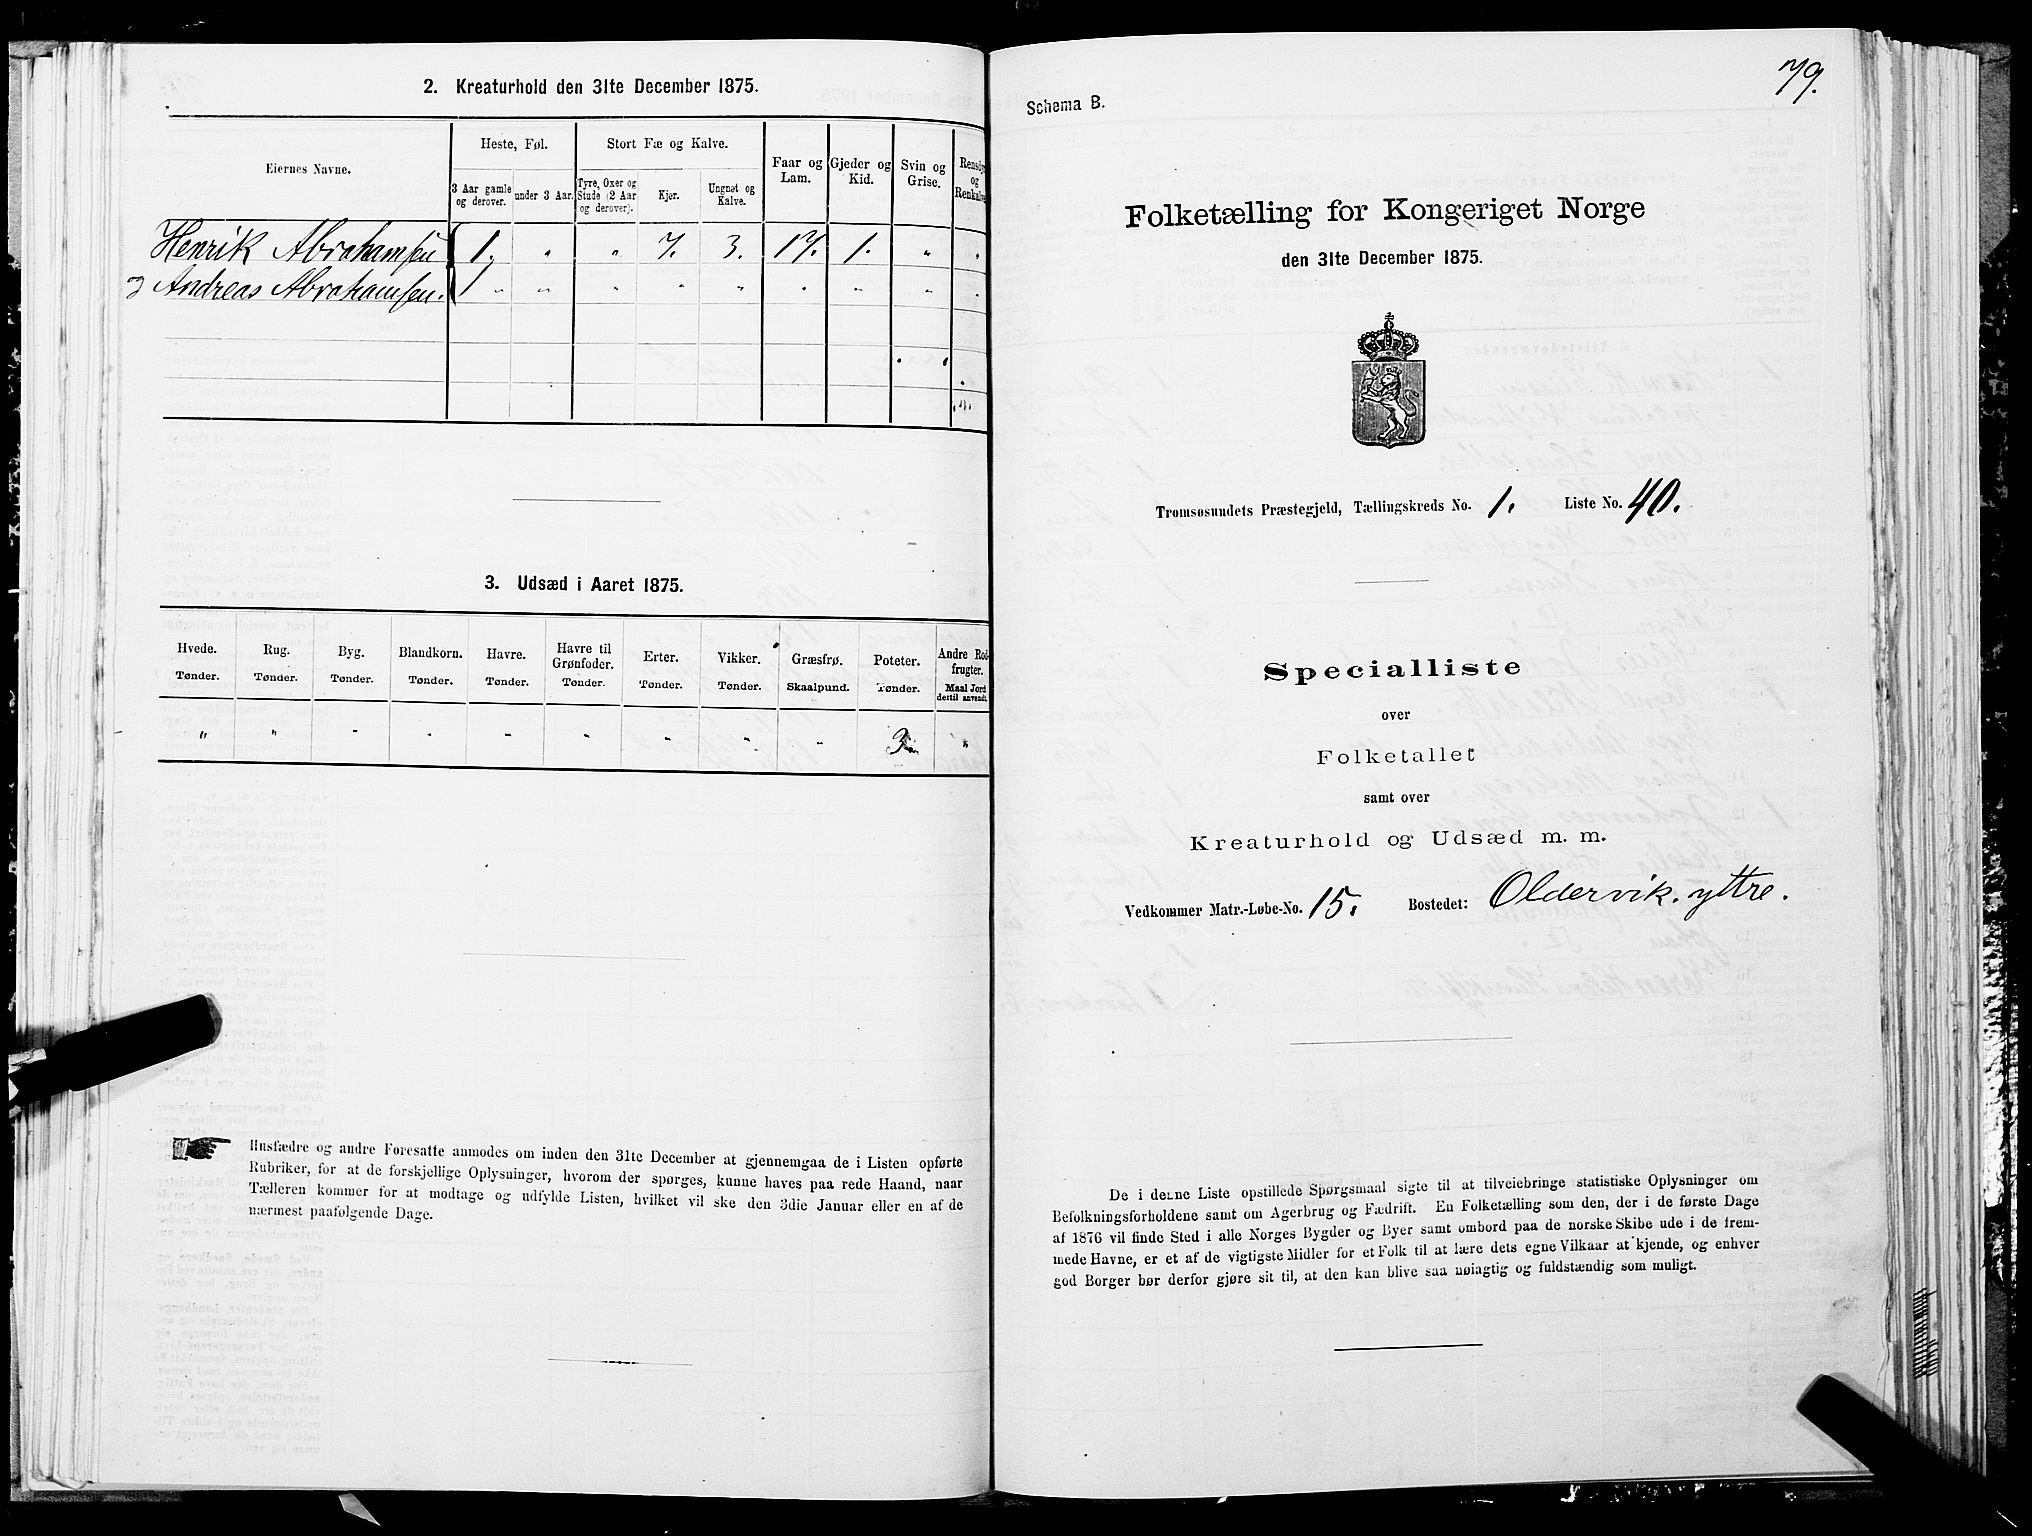 2. Kreaturhold den 31te December 1875.
Eiernes Navne.
Heste, Føl.
Stort Fæ og Kalve.
Faar og Lam.
Gjeder og Kid.
Svin og Grise.
Rensdyr og Renkalve
3 Aar gamle og derover.
under 3 Aar.
Tyre, Oxer og Stude (2 Aar og derover).
Kjør.
Ungnøt og Kalve.
Henrik Abrahamsen 1. " " 7. 3. 17. 1. " "
Andreas Abrahamsen. " " " " " " " "
3. Udsæd i Aaret 1875.
Hvede. Rug. Byg. Blandkorn. Havre. Havre til Grønfoder. Erter. Vikker. Græsfrø. Poteter. Andre Rodfrugter.
Tønder. Tønder. Tønder. Tønder. Tønder. Tønder. Tønder. Tønder. Skaalpund. Tønder. Maal Jord dertil anvendt.
" " " " " " " " " 3 "
Husfædre og andre Foresatte anmodes om inden den 31te December at gjennemgaa de i Listen opførte
Rubriker, for at de forskjellige Oplysninger, hvorom der spørges, kunne haves paa rede Haand, naar
Tælleren kommer for at modtage og udfylde Listen, hvilket vil ske den 3die Januar eller en af de
nærmest paafølgende Dage.
79.
Schema B.
Folketælling for Kongeriget Norge
den 31te December 1875.
Tromsøsundets Præstegjeld, Tællingskreds No. 1. Liste No. 40.
Specialliste
over
Folketallet
samt over
Kreaturhold og Udsæd m. m.
Vedkommer Matr.-Løbe-No. 15. Bostedet: Oldervik. yttre.
De i denne Liste opstillede Spørgsmaal sigte til at tilveiebringe statistiske Oplysninger om
Befolkningsforholdene samt om Agerbrug og Fædrift. En Folketælling som den, der i de første Dage
af 1876 vil finde Sted i alle Norges Bygder og Byer samt ombord paa de norske Skibe ude i de frem-
mede Havne, er et af de vigtigste Midler for et Folk til at lære dets egne Vilkaar at kjende, og enhver
god Borger bør derfor gjøre sit til, at den kan blive saa nøiagtig og fuldstændig som muligt.